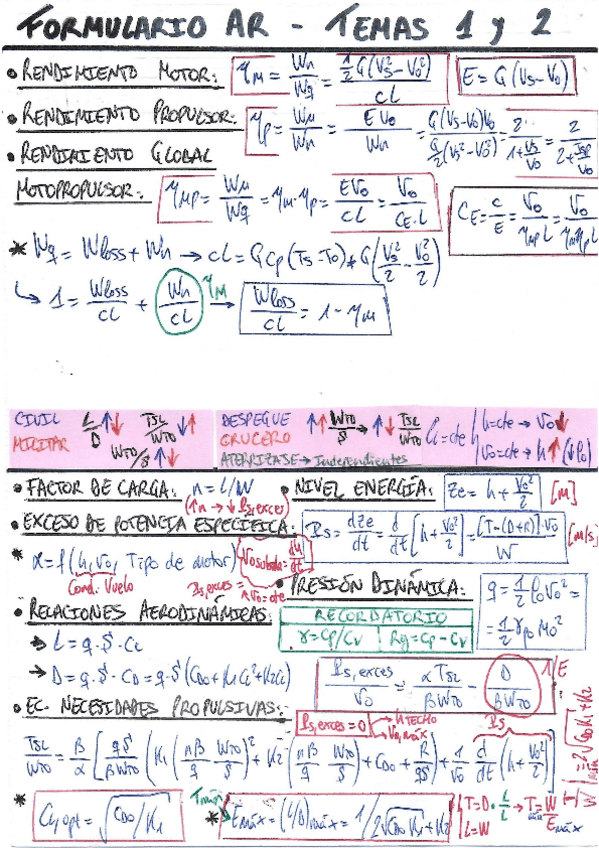 FORMULARIO AR - TEMAS 1 y 2
• RENDIMIENTO MOTOR: η_M = W_n/W_q = ½G(V_s²-V_0²)/cL E = G(V_s-V_0)
• RENDIMIENTO PROPULSOR: η_p = W_u/W_n = E V_0/W_n = G(V_s-V_0)V_0 / G/2(V_s²-V_0²) = 2/(1+V_s/V_0)
• RENDIMIENTO GLOBAL
MOTOPROPULSOR: η_MP = W_u/W_q = η_M·η_p = EV_0/cL = V_0/C_E·L C_E = c/E = V_0/η_MP L = V_0/η_M η_P L
* W_q = W_loss + W_n → cL = G C_p (T_s - T_0) + G(V_s²/2 - V_0²/2)
↳ 1 = W_loss/cL + W_n/cL η_M → W_loss/cL = 1 - η_M
CIVIL L/D ↑↓ T_SL/W_TO ↓↑ DESPEGUE ↑↑ W_TO/S → ↑↓ T_SL/W_TO h = cte → V_0 ↓
MILITAR W_TO/S ↑↓ CRUCERO V_0 = cte → h ↑ (↓ρ_0)
ATERRIZAJE → Independientes
• FACTOR DE CARGA: n = L/W • NIVEL ENERGÍA: Ze = h + V_0²/2 [m]
(↑n → ↓ Ps,exces)
• EXCESO DE POTENCIA ESPECIFICA: P_s = dZe/dt = d/dt [h + V_0²/2] = [T-(D+R)]·V_0/W [m/s]
* α = f(h, V_0, Tipo de motor) V_0 subida = dh/dt
Cond. Vuelo Ps,exces V_0 = cte
• PRESIÓN DINÁMICA: q = ½ρ_0V_0² =
= ½γp_0M_0²
• RELACIONES AERODINÁMICAS: RECORDATORIO
→ L = q·S·C_L γ = Cp/Cv Rg = Cp - Cv
→ D = q·S·C_D = q·S(C_D0 + K_1C_L² + K_2C_L) P_s,exces/V_0 = αT_SL/βW_TO - D/βW_TO 1/E
• EC. NECESIDADES PROPULSIVAS: P_s,exces = 0 h TECHO
V_0,máx P_s
T_SL/W_TO = β/α [qS/βW_TO (K_1(nβ/q W_TO/S)² + K_2(nβ/q W_TO/S) + C_D0 + R/qS) + 1/V_0 d/dt (h + V_0²/2)]
* C_L,opt = √(C_D0/K_1) T_mín * E_máx = (L/D)_máx = 1/(2√(C_D0 K_1) + K_2) T = D·L/L → T_mín = W/E_máx
L = W